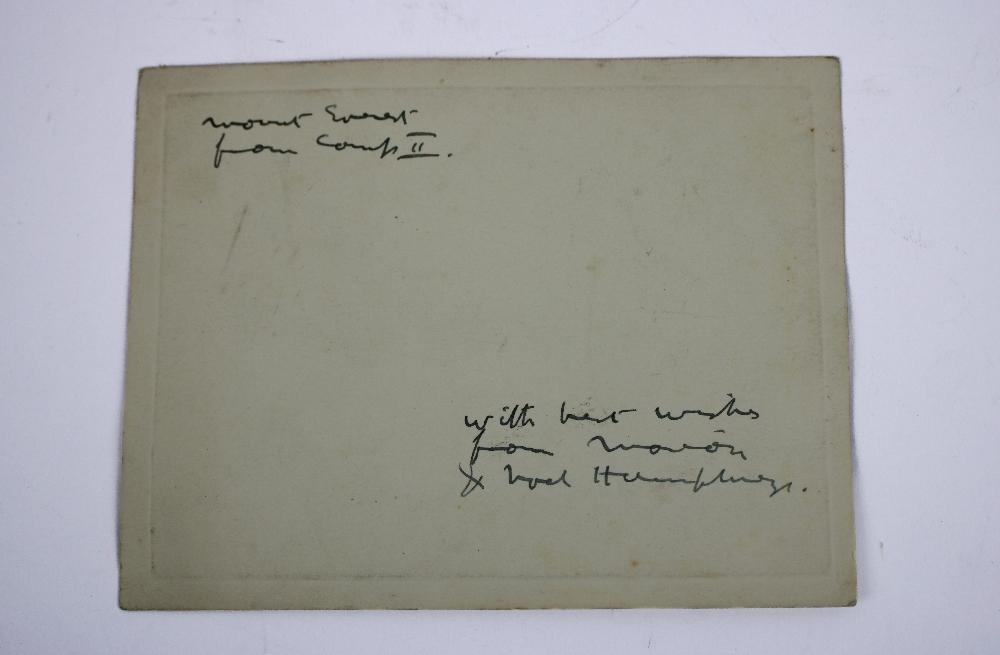 Mount Everest
from Camp II.
with best wishes
from Marion
& Noel Humphreys.